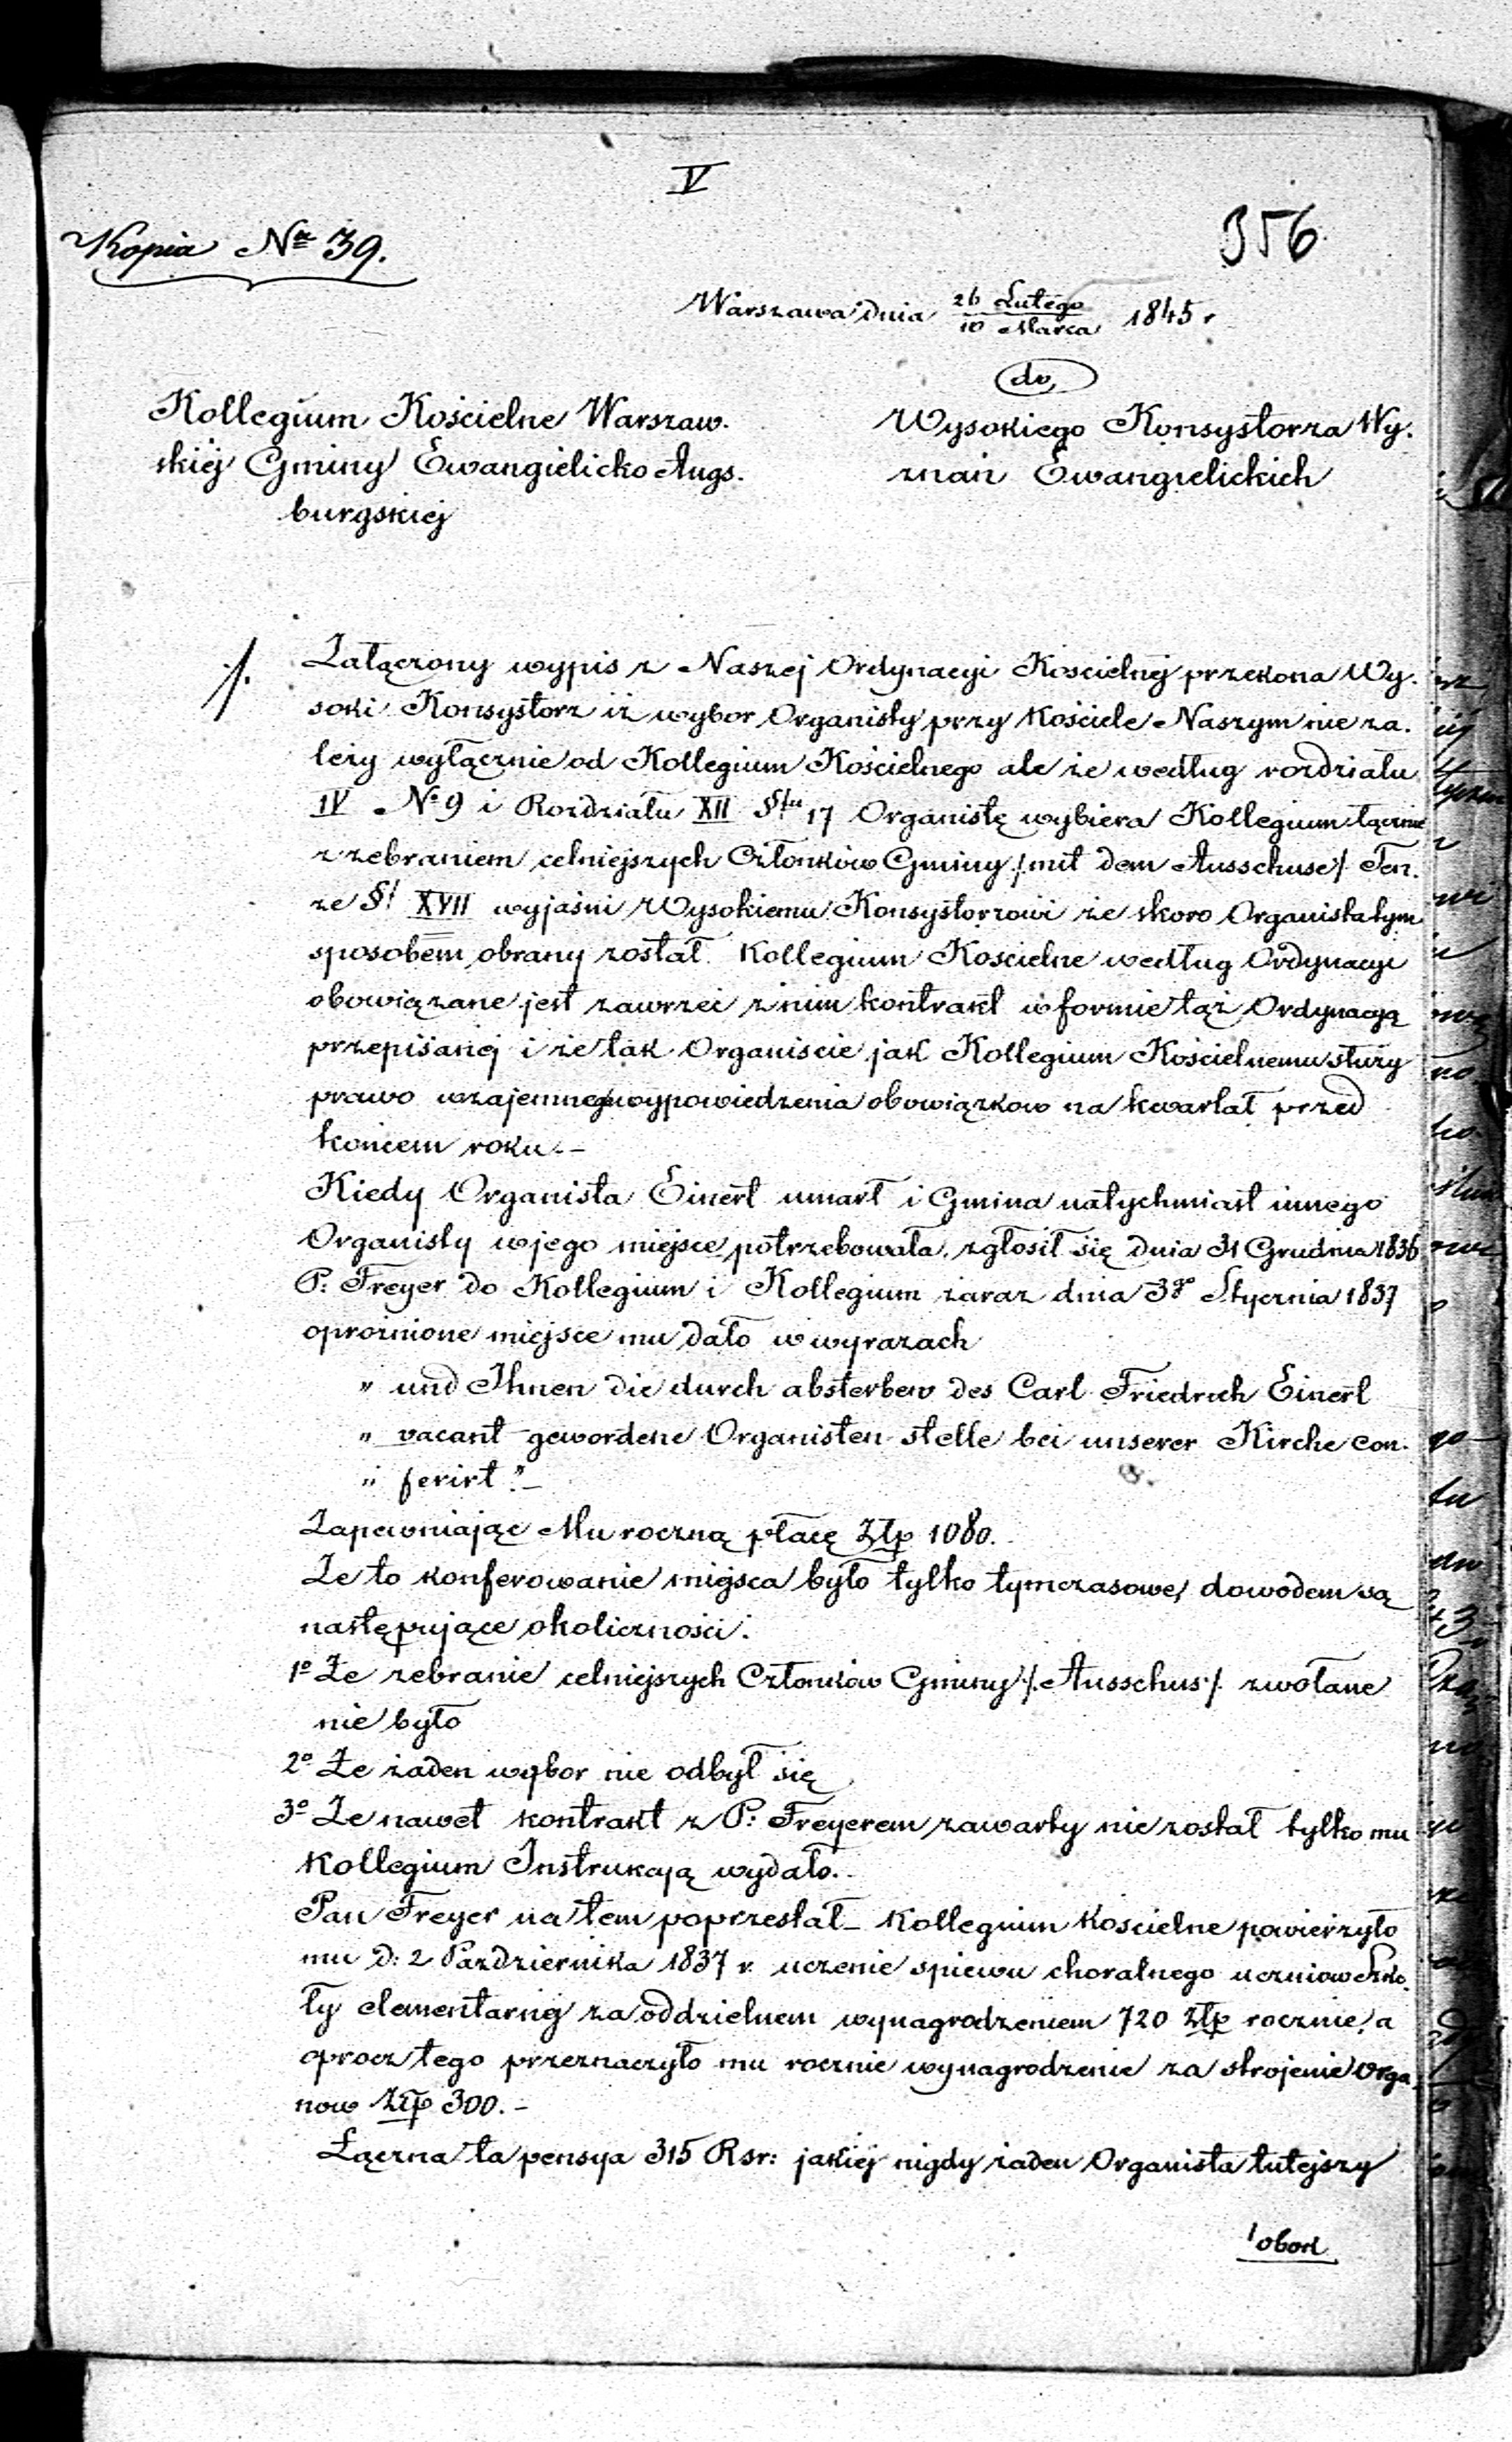 V
Kopia Nr 39.
356
Warszawa dnia 26 Lutego / 10 Marca 1845 r
Kollegium Kościelne Warszaw.
skiéj Gminy Ewangielicko Augs.
burgskiej
do
Wysokiego Konsystorza Wy.
znań Ewangielickich
/. Załączony wypis z Naszej Ordynacyi Koscielnéj przekona Wy.
soki Konsystorz iż wybor Organisty przy Kościele Naszym nie za.
leży wyłącznie od Kollegium Kościelnego ale że według rozdziału
IV No 9 i Rozdziału XII §fu 17 Organistę wybiera Kollegium łącznie
z zebraniem celniejszych Członków Gminy /:mit dem Ausschuse/ Ten.
że §f XVII wyjaśni Wysokiemu Konsystorzowi że skoro Organista tym
sposobem obrany został Kollegium Koscielne według Ordynacyi
obowiązane jest zawrzeć z nim kontrakt w formie tąż Ordynacyą
przepisanej i że tak Organiscie jak Kollegium Kościelnemu służy
prawo wzajemnego wypowiedzenia obowiązkow na kwartał przed
końcem roku.-
Kiedy Organista Einert umarł i Gmina natychmiast innego
Organisty w jego miejsce potrzebowała, zgłosił się dnia 31 Grudnia 1836
P: Freyer do Kollegium i Kollegium zaraz dnia 3go Stycznia 1837
oprożnione miejsce mu dało w wyrazach
" und Ihnen die durch absterben des Carl Friedrich Einert
" vacant gewordene Organisten stelle bei unserer Kirche con.
" ferirt "-
Zapewniając Mu roczną płacę Złp 1080.
Że to konferowanie miejsca było tylko tymczasowe, dowodem są
następujące okoliczności.
1o Że zebranie celniejszych Członków Gminy /:Ausschus:/ zwołane
nie było
2o Że żaden wybor nie odbył się
3o Że nawet kontrakt z P: Freyerem zawarty nie został tylko mu
Kollegium Instrukcyą wydało.-
Pan Freyer na tem poprzestał- Kollegium Koscielne powierzyło
mu d: 2 Pazdziernika 1837 r. uczenie spiewu choralnego uczniow Szko.
ły elementarnéj za oddzielnem wynagrodzeniem 720 złp rocznie, a
oprocz tego przeznaczyło mu rocznie wynagrodzenie za strojenie Orga.
now Złp 300.-
Łączna ta pensya 315 Rsr: jakiéj nigdy żaden Organista tutejszy